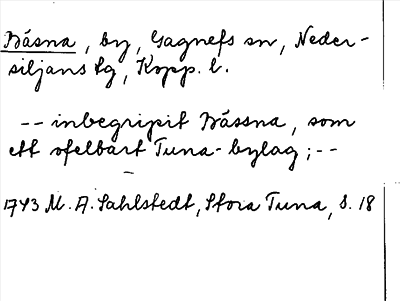 Båsna, by, Gagnefs sn, Neder-
siljans tg, Kopp. l.
-- inbegripit Båssna, som
ett ofelbart Tuna-bylag; --
1743 M. A. Sahlstedt, Stora Tuna, s. 18